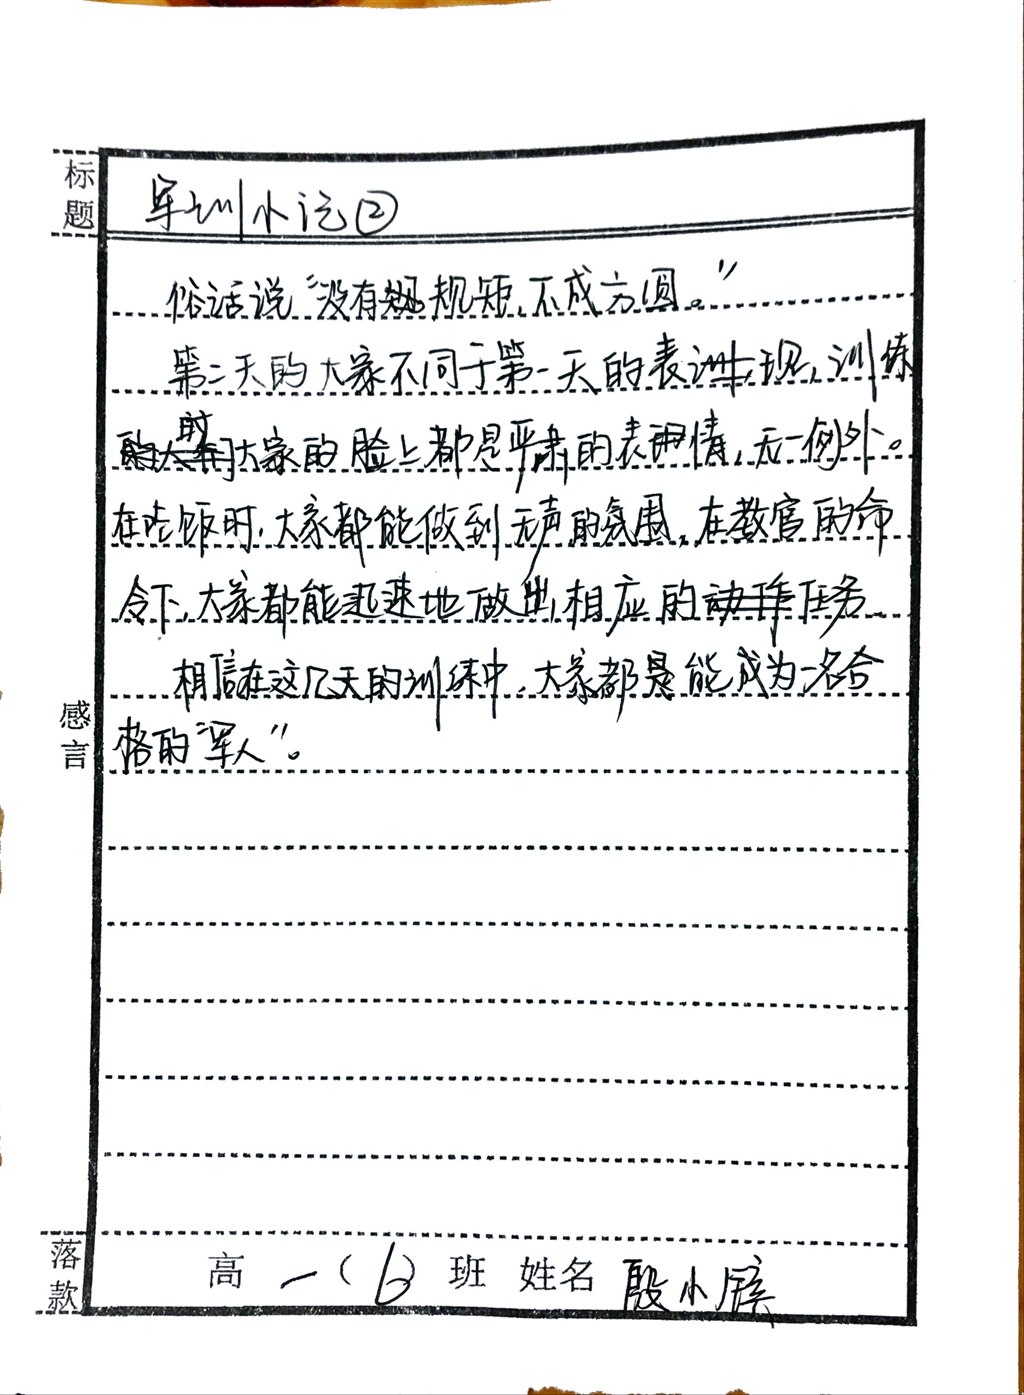 标题
军训小记②
俗话说“没有规矩，不成方圆。”
第二天的大家不同于第一天的表现，训练
时大家的脸上都是严肃的表情，无一例外。
在吃饭时，大家都能做到无声的氛围，在教官的命
令下，大家都能迅速地做出相应的任务。
相信在这几天的训练中，大家都是能成为一名合
格的“军人”。
感言
落款
高一（6）班 姓名 殷小